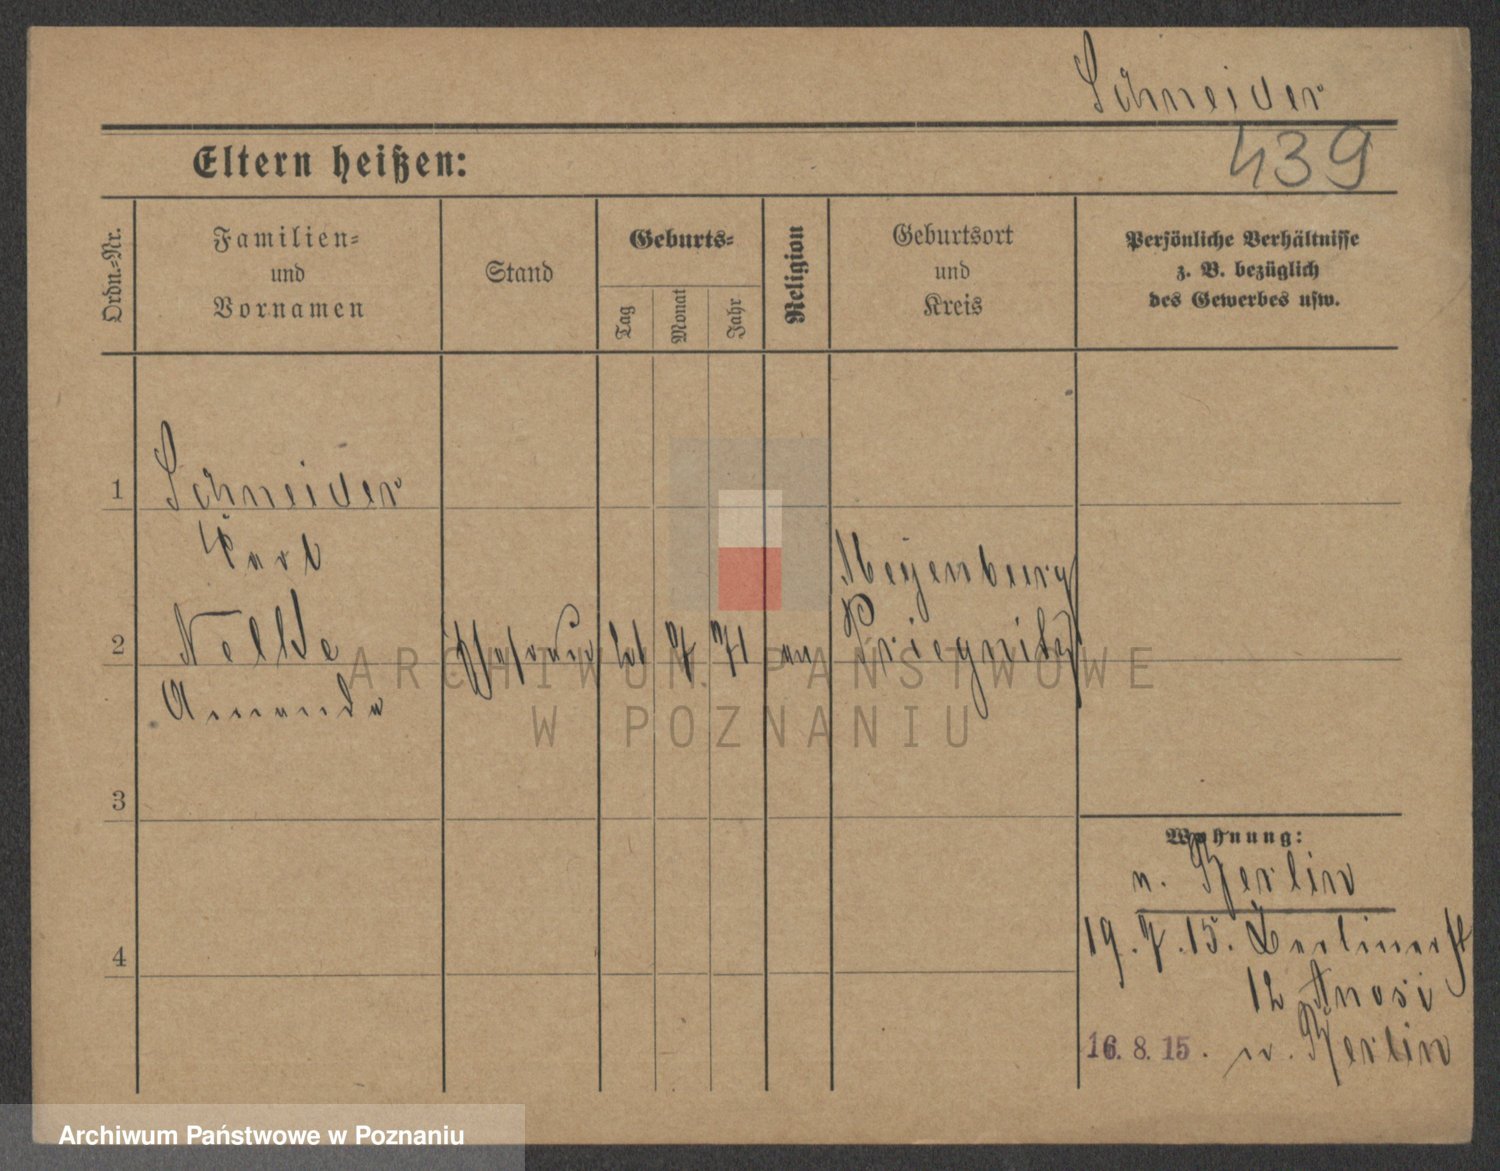 Schneider
439
Eltern heißen:
Ordn.-Nr.
Familien-
und
Vornamen
Stand
Geburts-
Tag
Monat
Jahr
Religion
Geburtsort
und
Kreis
Persönliche Verhältnisse
z. B. bezüglich
des Gewerbes usw.
1 Schneider
Karl
Meyenburg
2 Nelke 7 71 ev Priegnitz
Amanda
3
Wohnung:
n. Berlin
19.7.15. Berlinerst
4
12
16.8.15. n. Berlin
ARCHIWUM PAŃSTWOWE
W POZNANIU
Archiwum Państwowe w Poznaniu